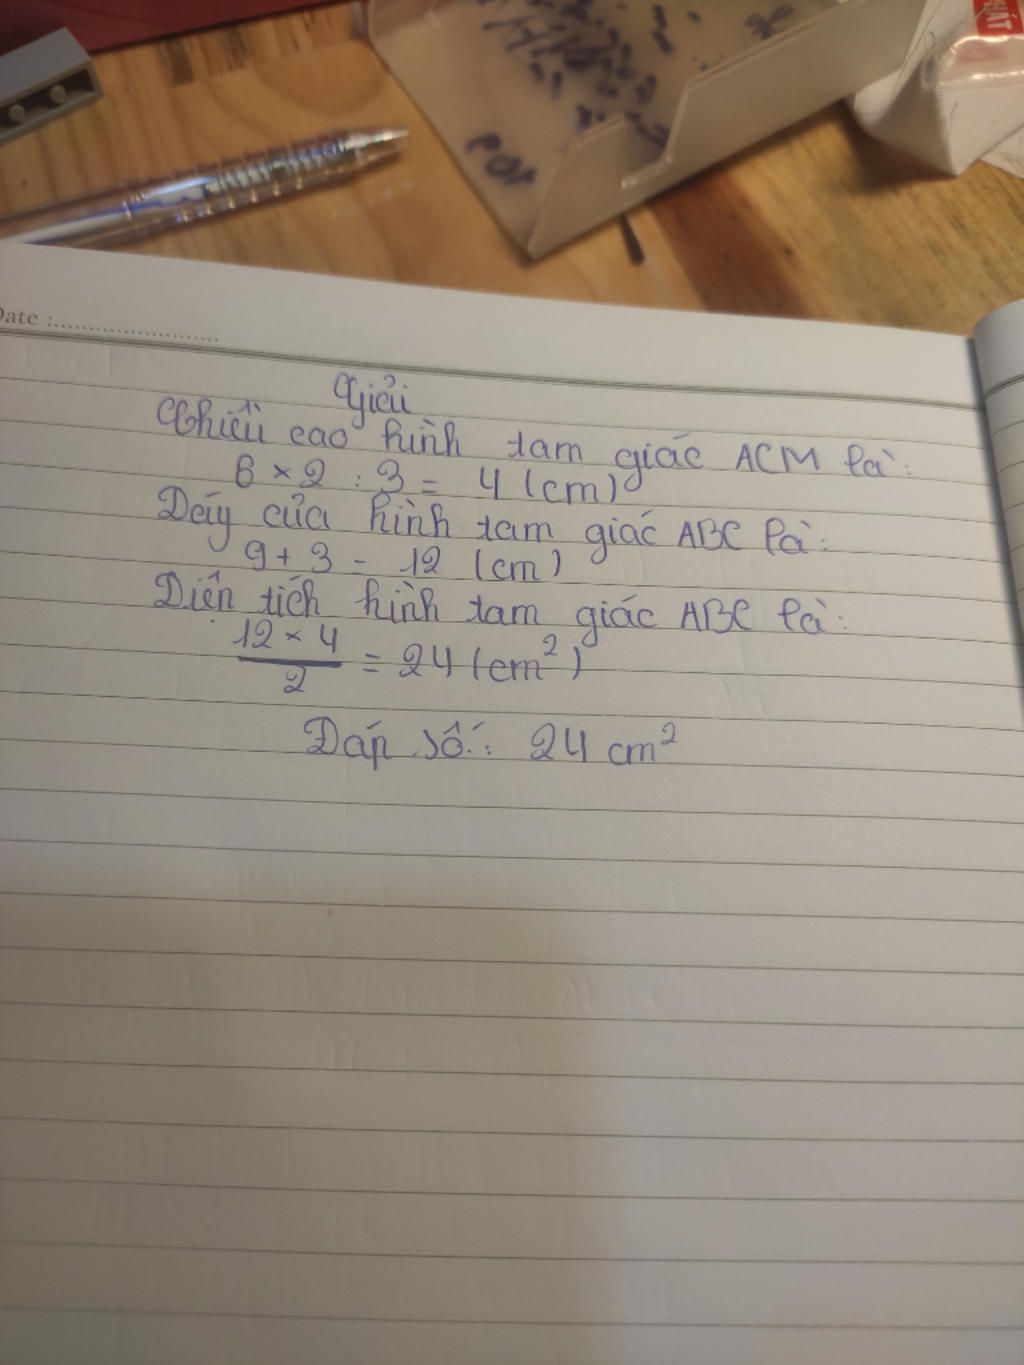 PHÁT
Date :
Giải
Chiều cao hình tam giác ACM là:
6 × 2 : 3 = 4 (cm)
Đáy của hình tam giác ABC là:
9 + 3 = 12 (cm)
Diện tích hình tam giác ABC là:
12 × 4 / 2 = 24 (cm²)
Đáp số: 24 cm²